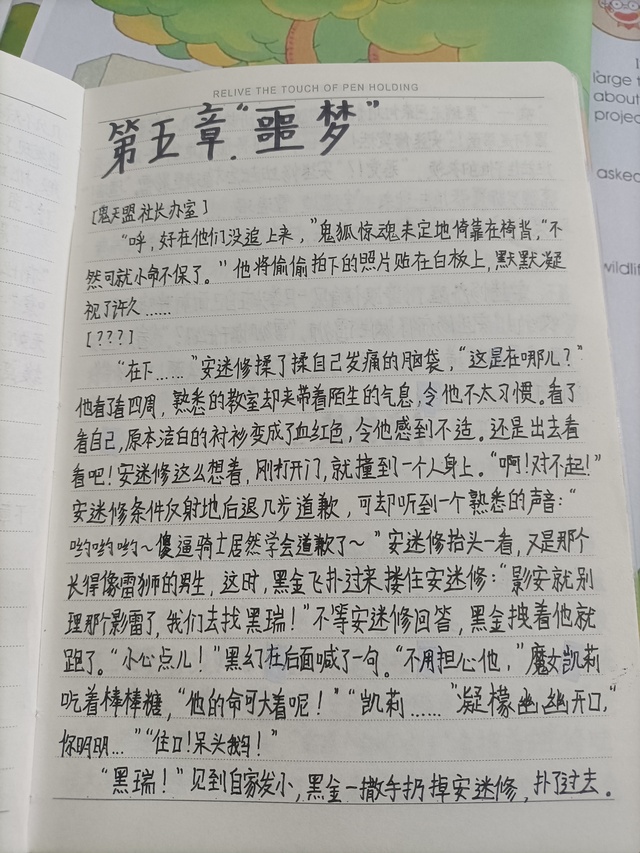 RELIVE THE TOUCH OF PEN HOLDING
第五章.“噩梦”
[鬼天盟社长办室]
“呼,好在他们没追上来,”鬼狐惊魂未定地倚靠在椅背,“不
然可就小命不保了。”他将偷偷拍下的照片贴在白板上,默默凝
视了许久……
[???]
“在下……”安迷修揉了揉自己发痛的脑袋,“这是在哪儿?”
他看了看四周,熟悉的教室却夹带着陌生的气息,令他不太习惯。看了
看自己,原本洁白的衬衫变成了血红色,令他感到不适。还是出去看
看吧!安迷修这么想着,刚打开门,就撞到了一个人身上。“啊!对不起!”
安迷修条件反射地后退几步道歉,可却听到一个熟悉的声音:“
哟哟哟~傻逼骑士居然学会道歉了~”安迷修抬头一看,又是那个
长得像雷狮的男生,这时,黑金飞扑过来搂住安迷修:“影安就别
理那个影雷了,我们去找黑瑞!”不等安迷修回答,黑金拽着他就
跑了。“小心点儿!”黑幻在后面喊了一句。“不用担心他,”魔女凯莉
吃着棒棒糖,“他的命可大着呢!”“凯莉……”凝檬幽幽开口,“
你明明…”“住口!呆头鹅!”
“黑瑞!”见到自家发小,黑金一撒手扔掉安迷修,扑了过去。
1
large t
about
projec
asked
wildlif